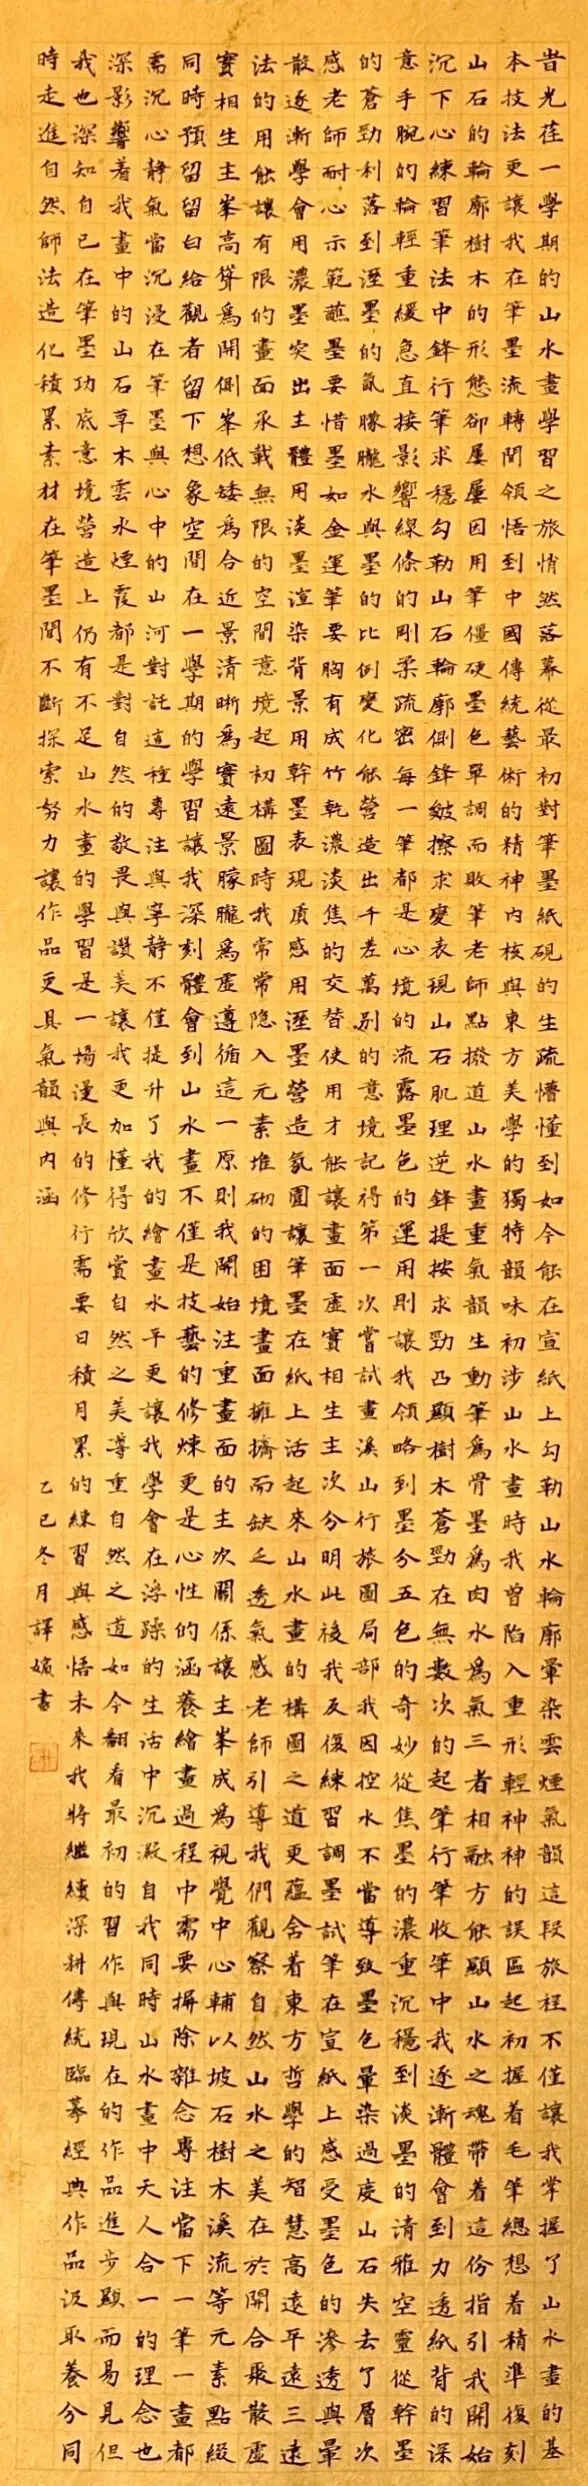 昔光荏一學期的山水畫學習之旅悄然落幕從最初對筆墨紙硯的生疏懵懂到如今能在宣紙上勾勒山水輪廓暈染雲煙氣韻這段旅程不僅讓我掌握了山水畫的基
本技法更讓我在筆墨流轉間領悟到中國傳統藝術的精神內核與東方美學的獨特韻味初涉山水畫時我曾陷入重形輕神神的誤區起初握着毛筆總想着精準復刻
山石的輪廓樹木的形態卻屢屢因用筆僵硬墨色單調而敗筆老師點撥道山水畫重氣韻生動筆為骨墨為肉水為氣三者相融方能顯山水之魂帶着這份指引我開始
沉下心練習筆法中鋒行筆求穩勾勒山石輪廓側鋒皴擦求變表現山石肌理逆鋒提按求勁凸顯樹木蒼勁在無數次的起筆行筆收筆中我逐漸體會到力透紙背的深
意手腕的輪輕重緩急直接影響線條的剛柔疏密每一筆都是心境的流露墨色的運用則讓我領略到墨分五色的奇妙從焦墨的濃重沉穩到淡墨的清雅空靈從幹墨
的蒼勁利落到溼墨的氤朦朧水與墨的比例變化能營造出千差萬別的意境記得第一次嘗試畫溪山行旅圖局部我因控水不當導致墨色暈染過度山石失去了層次
感老師耐心示範蘸墨要惜墨如金運筆要胸有成竹乾濃淡焦的交替使用才能讓畫面虛實相生主次分明此後我反復練習調墨試筆在宣紙上感受墨色的滲透與暈
散逐漸學會用濃墨突出主體用淡墨渲染背景用幹墨表現质感用溼墨營造氛圍讓筆墨在紙上活起來山水畫的構圖之道更蘊舍着東方哲學的智慧高遠平遠三遠
法的用能讓有限的畫面承載無限的空間意境起初構圖時我常常隐入元素堆砌的困境畫面擁擠而缺乏透氣感老師引導我們觀察自然山水之美在於開合聚散虛
實相生主峯高聳為開側峯低矮為合近景清晰為實遠景朦朧為虛遵循這一原則我開始注重畫面的主次關係讓主峯成為視覺中心輔以坡石樹木溪流等元素點綴
同時預留留白給觀者留下想象空間在一學期的學習讓我深刻體會到山水畫不僅是技藝的修煉更是心性的涵養繪畫過程中需要摒除雜念專注當下一筆一畫都
需沉心靜氣當沉浸在筆墨與心中的山河對託這種專注與寧靜不僅提升了我的繪畫水平更讓我學會在浮躁的生活中沉澱自我同時山水畫中天人合一的理念也
深影響着我畫中的山石草木雲水煙霞都是對自然的敬畏與讚美讓我更加懂得欣賞自然之美尊重自然之道如今翻看最初的習作與現在的作品進步顯而易見但
我也深知自已在筆墨功底意境營造上仍有不足山水畫的學習是一場漫長的修行需要日積月累的練習與感悟未來我將繼續深耕傳統臨摹經典作品汲取養分同
時走進自然師法造化積累素材在筆墨間不斷探索努力讓作品更具氣韻與內涵
乙巳冬月譯嬪書